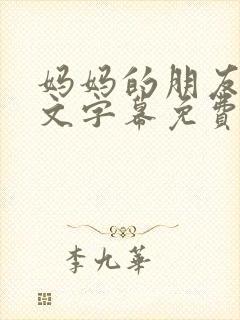 妈妈的朋友
文字幕免費
李九華